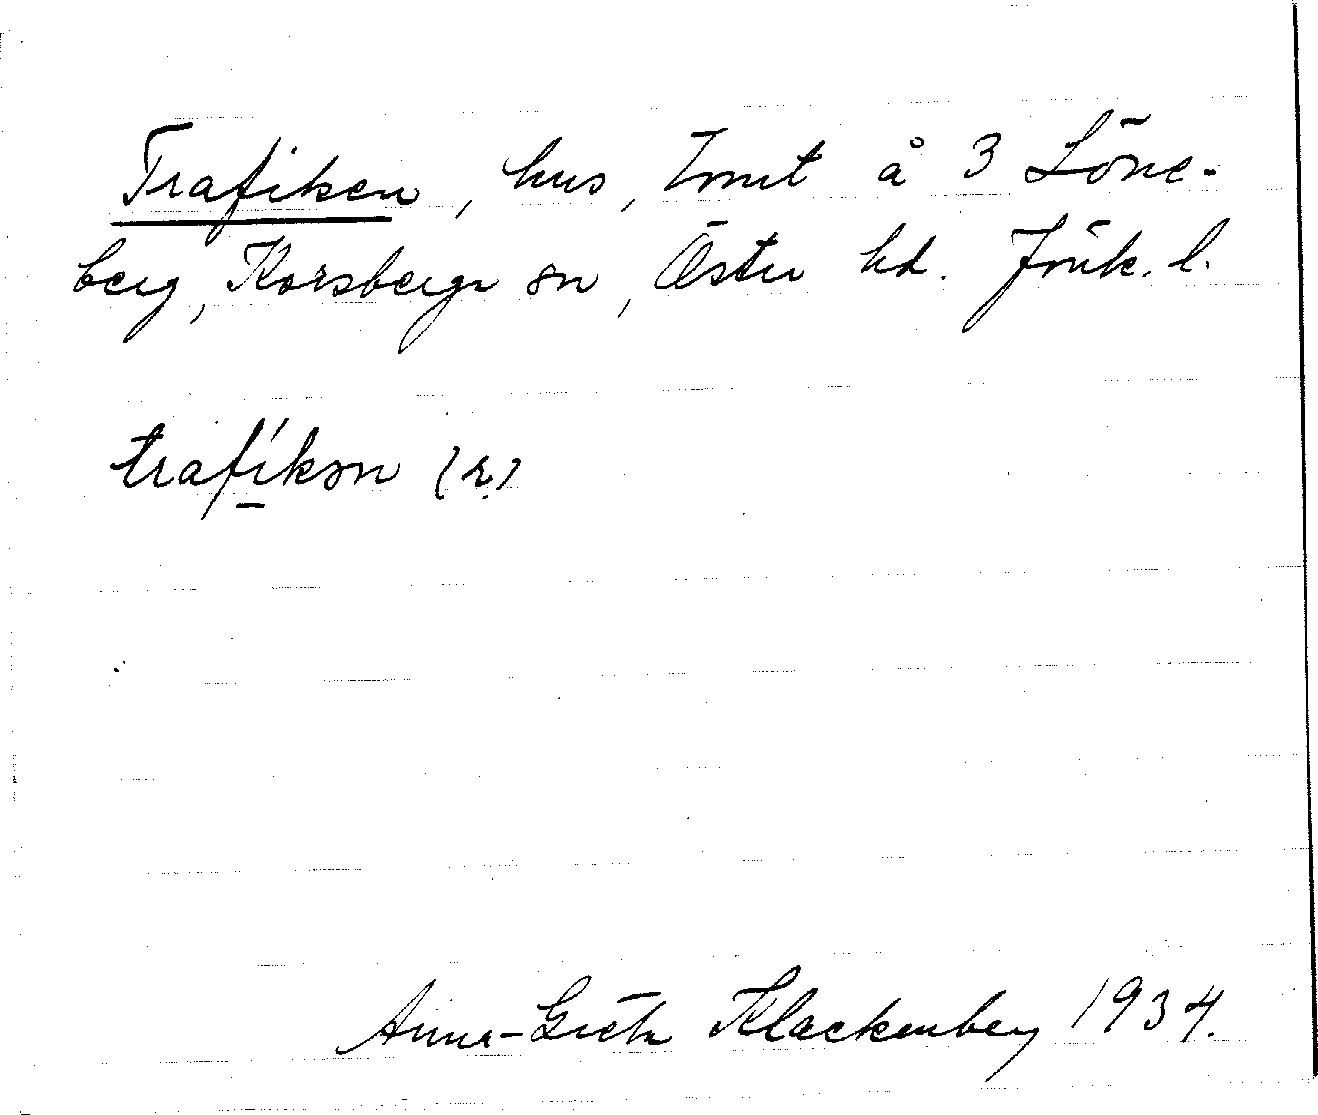 Trafiken, hus, tomt å 3 Löne-
berg, Korsberga sn, Östra hd. Jönk. l.
trafíkən (r.)
Anna-Greta Klackenberg 1934.